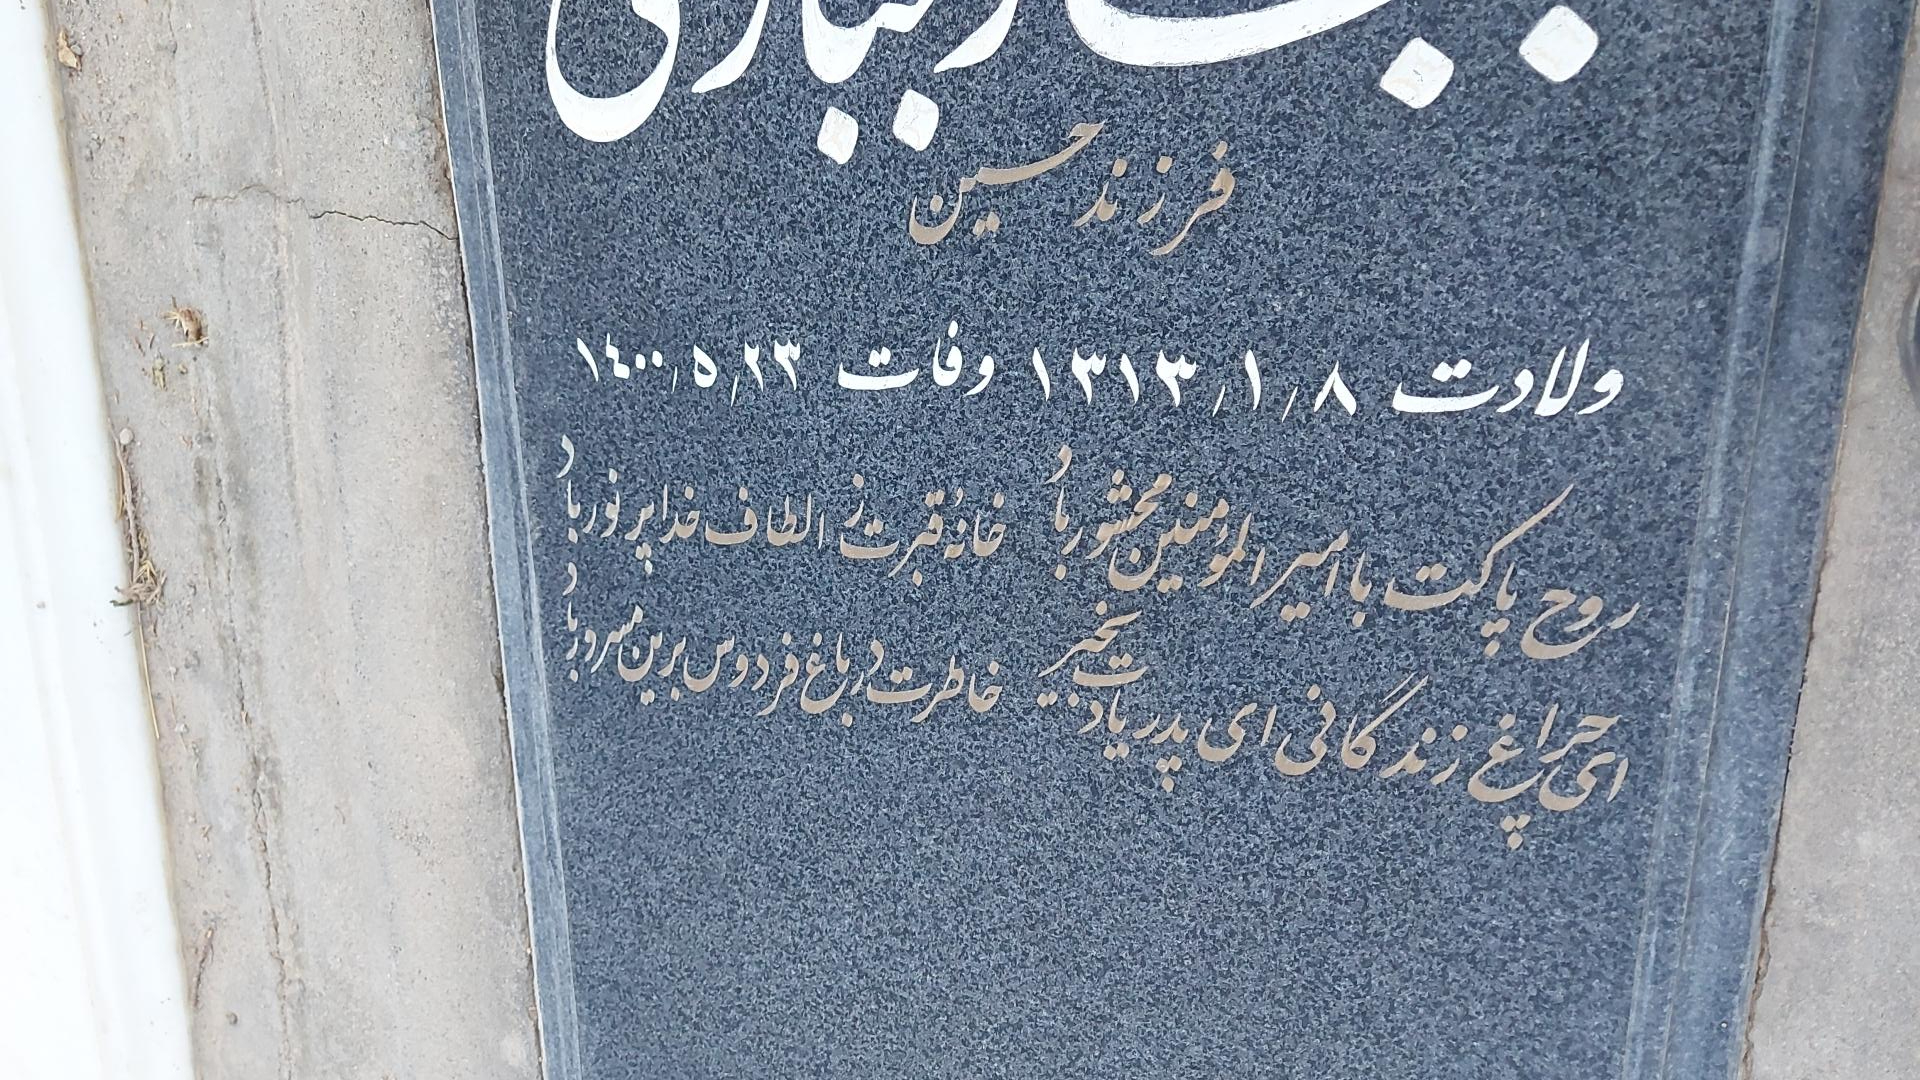 فرزند حسین
ولادت ۱۳۱۳/۱/۸ وفات ۱۴۰۰/۵/۲۳
روح پاکت با امیرالمؤمنین محشور باد خانهٔ قبرت ز الطاف خدا پر نور باد
ای چراغ زندگانی ای پدر یادت بخیر خاطرت در باغ فردوس برین مسرور باد